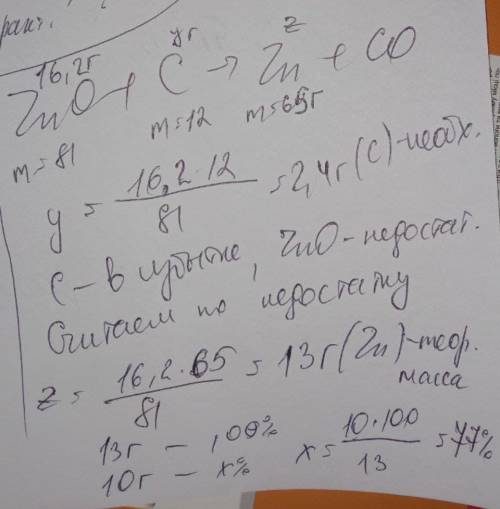 16,2г yг z
ZnO + C → Zn + CO
m=81 m=12 m=65г
y = 16,2·12 / 81 = 2,4г (C) - необх.
C - в избытке, ZnO - недостат.
Считаем по недостатку
z = 16,2·65 / 81 = 13г (Zn) - теор.
масса
13г — 100%
10г — x% x = 10·100 / 13 = 77%